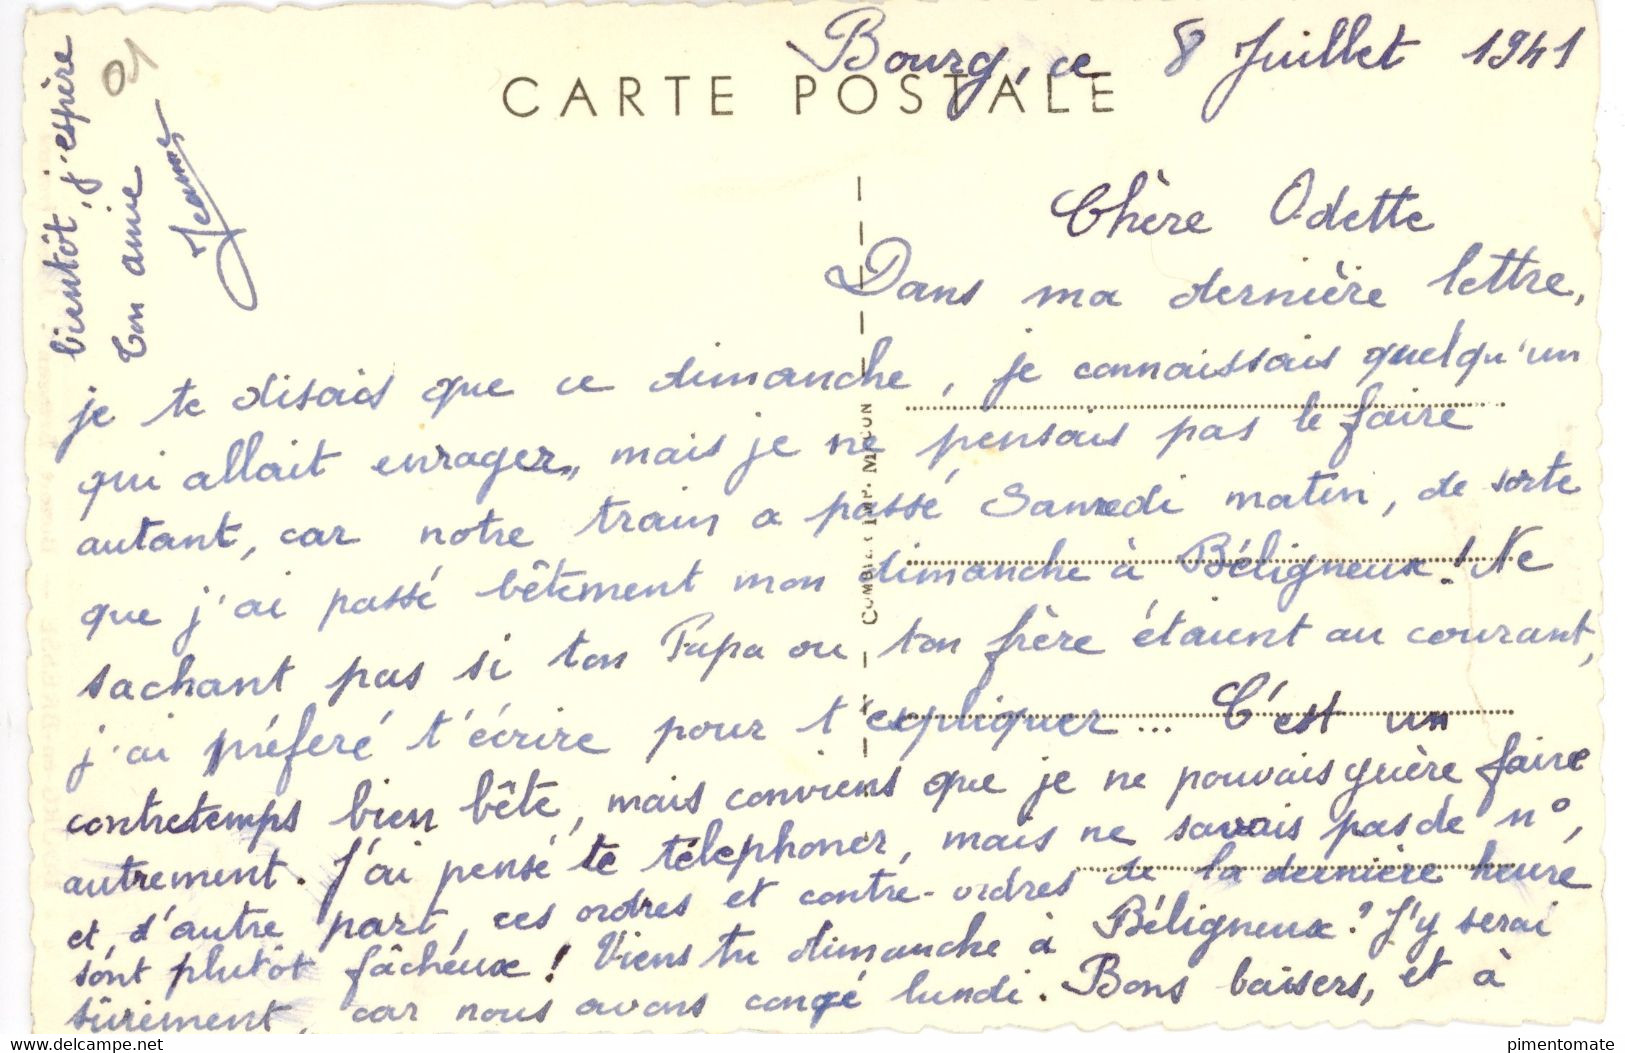 Bourg, ce 8 Juillet 1941
CARTE POSTALE
Chère Odette
Dans ma dernière lettre,
je te disais que ce dimanche, je connaissais quelqu'un
qui allait enrager, mais je ne pensais pas le faire
autant, car notre train a passé Samedi matin, de sorte
que j'ai passé bêtement mon dimanche à Béligneux! Ne
sachant pas si ton Papa ou ton frère étaient au courant,
j'ai préferé t'écrire pour t'expliquer... C'est un
contretemps bien bête, mais conviens que je ne pouvais guère faire
autrement. J'ai pensé te télephoner, mais ne savais pas de n°,
et, d'autre part, ces ordres et contre-ordres de la dernière heure
sont plutôt fâcheux! Viens tu dimanche à Béligneux? J'y serai
sûrement, car nous avons congé lundi. Bons baisers, et à
bientôt, j'espère
Ton amie
Jeanne
01
COMBIER IMP. MACON
delcampe.net
pimentomate